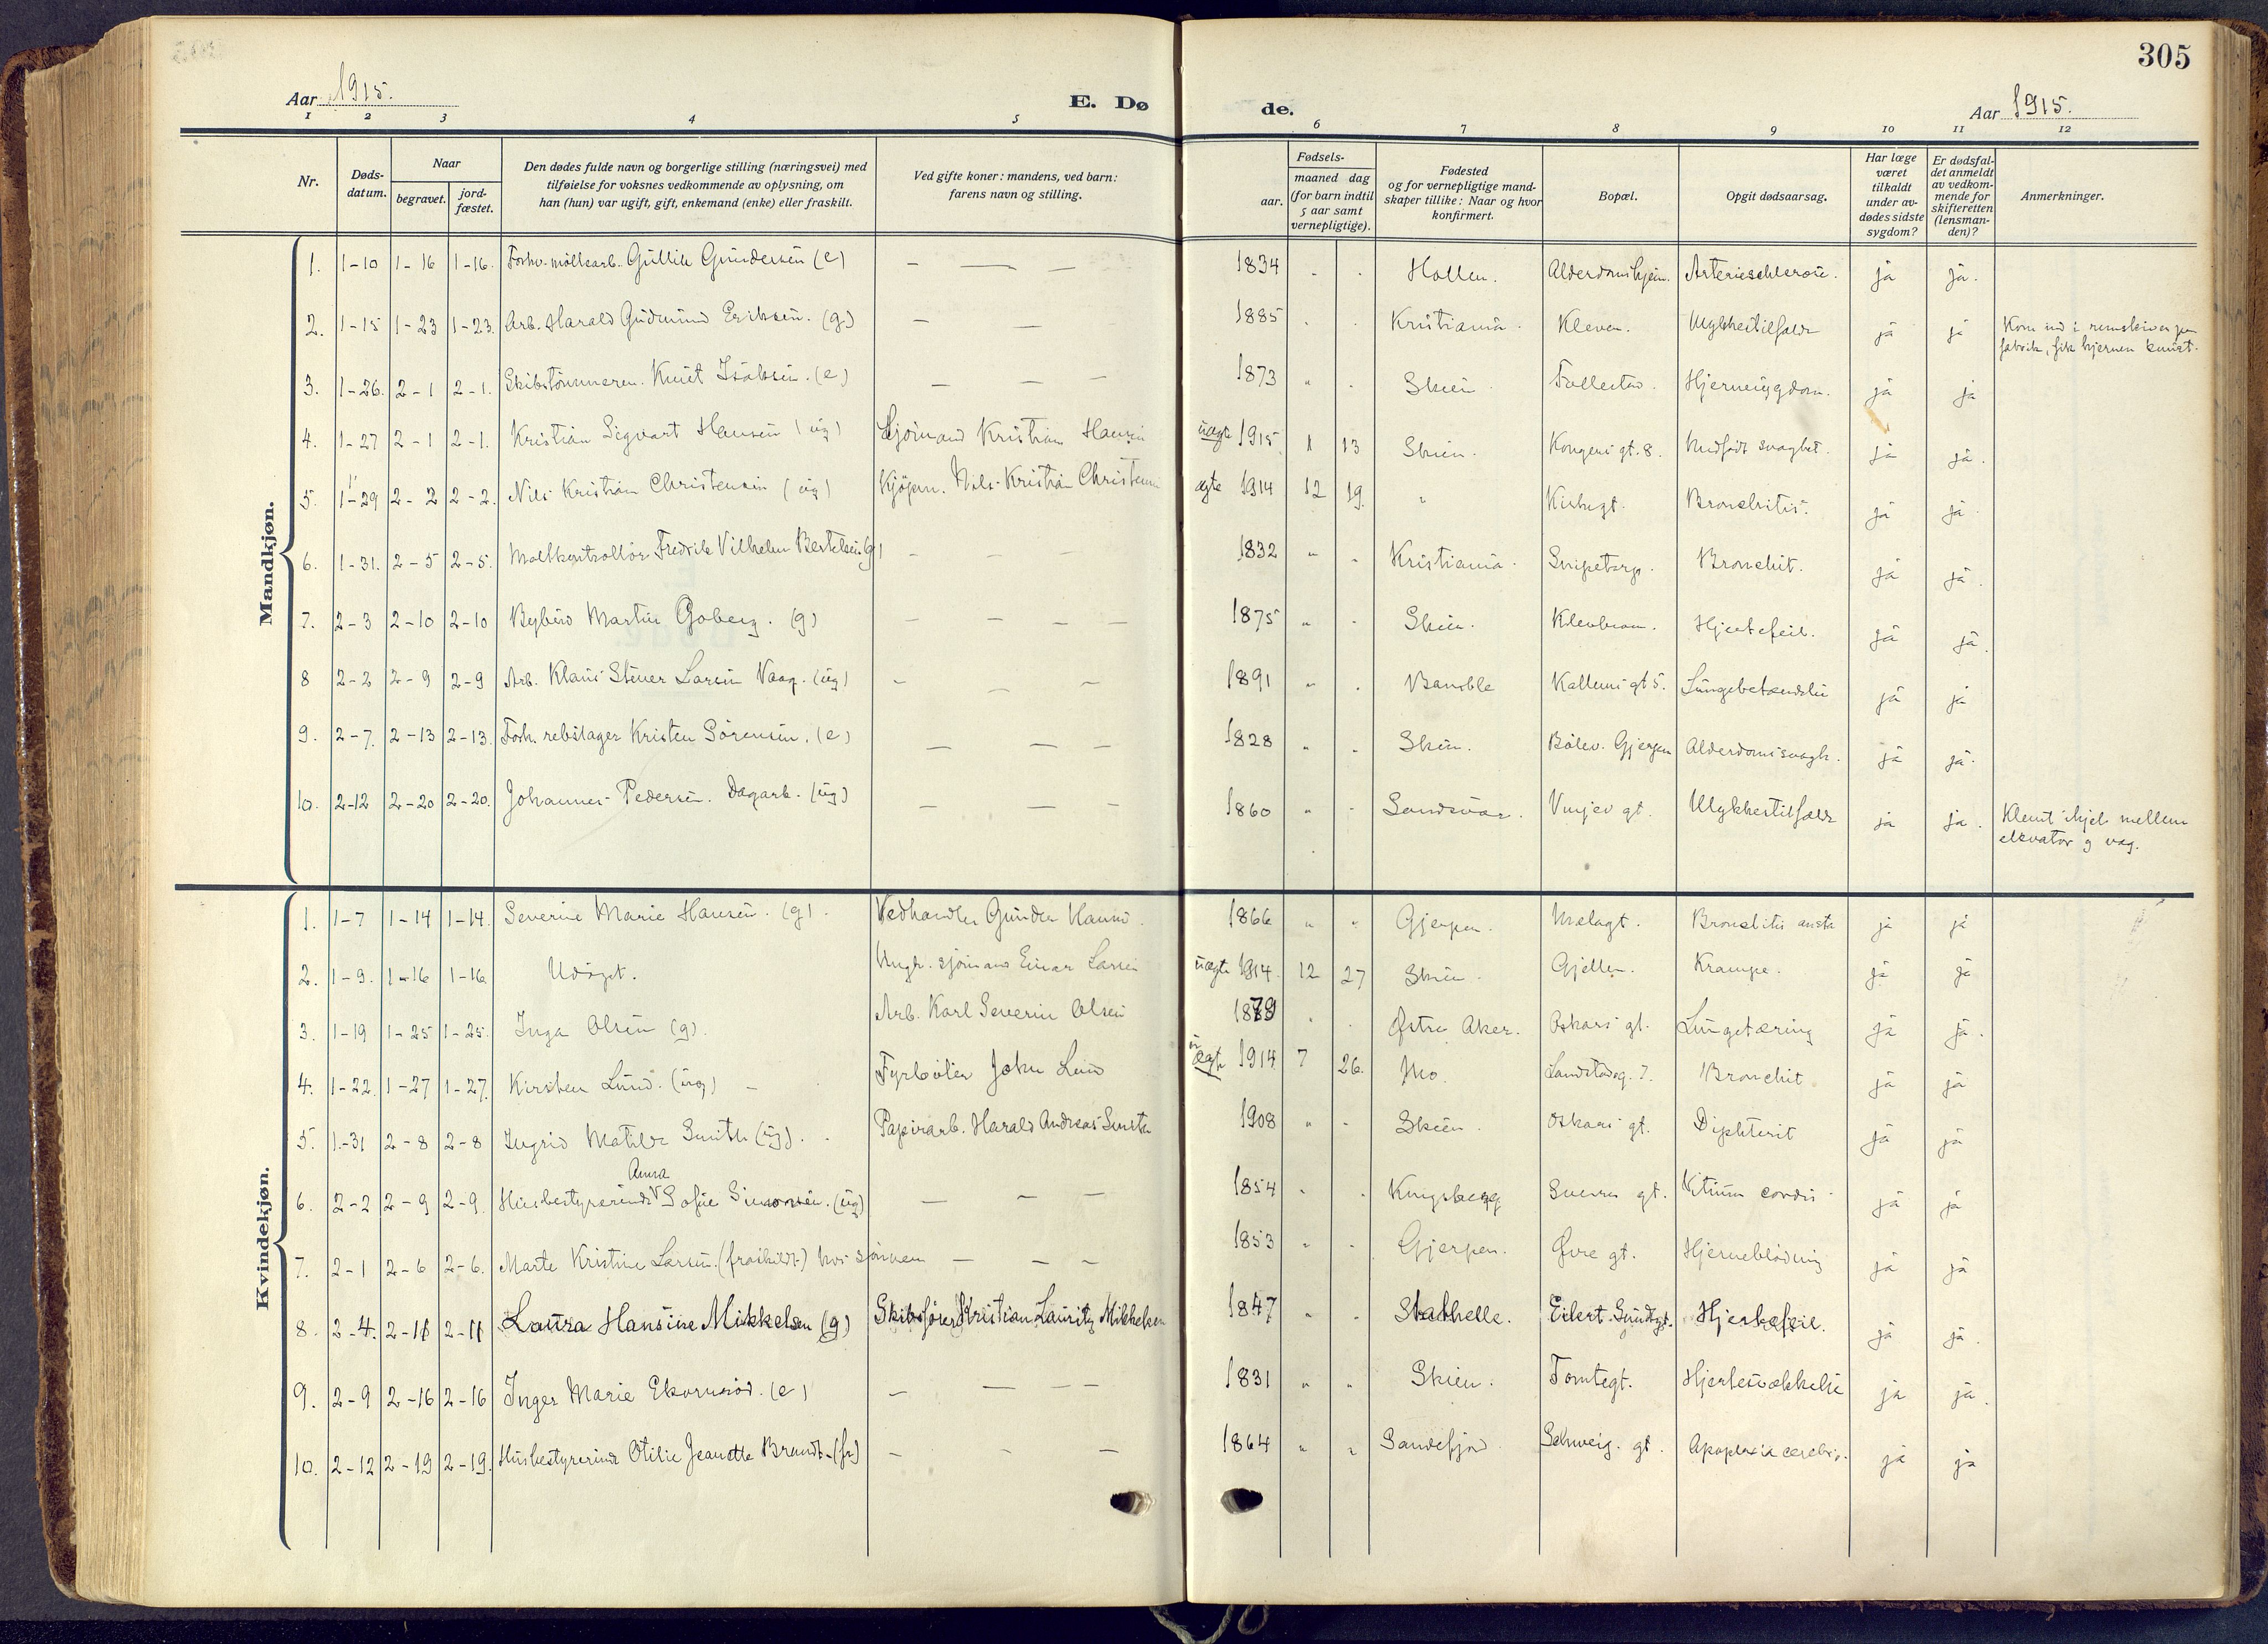 305
Aar 1915.
E. Dø de.
Aar 1915.
1 2 3 4 5 6 7 8 9 10 11 12
Nr.
Døds-
datum.
Naar
begravet.
jord-
fæstet.
Den dødes fulde navn og borgerlige stilling (næringsvei) med
tilføielse for voksnes vedkommende av oplysning, om
han (hun) var ugift, gift, enkemand (enke) eller fraskilt.
Ved gifte koner: mandens, ved barn:
farens navn og stilling.
Fødsels-
aar.
maaned dag
(for barn indtil
5 aar samt
vernepligtige).
Fødested
og for vernepligtige mand-
skaper tillike: Naar og hvor
konfirmert.
Bopæl.
Opgit dødsaarsag.
Har læge
været
tilkaldt
under av-
dødes sidste
sygdom?
Er dødsfal-
det anmeldt
av vedkom-
mende for
skifteretten
(lensman-
den)?
Anmerkninger.
Mandkjøn.
1. 1-10 1-16 1-16. Forhv. møllearb. Gullik Gundersen (e) — — — 1834 Hollen. Alderdomshjem. Arteriesclerose. ja ja.
2. 1-15 1-23 1-23. Arb. Harald Gudmund Eriksen. (g) — — 1885 Kristiania. Kleven. Ulykkestilfælde ja ja Kom ind i remskiven paa
fabrik, fik hjernen knust.
3. 1-26. 2-1 2-1. Skibstømmerm. Knut Isaksen. (e) — — — 1873 " Skien. Follestad. Hjernesygdom. ja ja
4. 1-27 2-1 2-1. Kristian Sigvart Hansen (ug) Sjømand Kristian Hansen uægte 1915 1 13 Skien. Kongens gt. 8. Medfødt svaghet. ja ja.
5. 1-29 2-2 2-2. Nils Kristian Christensen (ug) Kjøpm. Nils Kristian Christensen ægte 1914 12 19. " Kirkegt. Bronchitis. ja ja
6. 1-31. 2-5 2-5. Maltkontrollør Fredrik Vilhelm Bertelsen (g) — — — 1832 " Kristiania. Snipetorp. Bronchit. ja ja.
7. 2-3 2-10 2-10 Bybud Martin Goberg. (g) — — — — 1875 " Skien. Klevbram. Hjertefeil. ja ja.
8 2-2 2-9 2-9 Arb. Klaus Stener Larsen Vaag. (ug) — — — 1891 " Bamble Kallums gt 5. Lungebetændelse ja ja
9. 2-7. 2-13 2-13. Forh. rebslager Kristen Sørensen. (e) — — — 1828 " Skien. Bølev. Gjerpen Alderdomssvagh. ja ja.
10. 2-12 2-20 2-20. Johannes Pedersen. Dagarb. (ug) — — — 1860 " Sandsvær. Vinjes gt. Ulykkestilfælde ja ja. Klemt ihjel mellem
elevator og væg.
Kvindekjøn.
1. 1-7 1-14 1-14. Severine Marie Hansen. (g). Vedhandler Gunder Hansen. 1866 " " Gjerpen. Mælagt. Bronchitis ja ja
2. 1-9. 1-16 1-16 Udøpt. Ungk. sjømand Einar Larsen uægte 1914. 12 27 Skien. Gjellen. Krampe. ja ja
3. 1-19 1-25 1-25. Inga Olsen (g). Arb. Karl Severin Olsen 1879 Østre Aker. Oskars gt. Lungetæring ja ja.
4. 1-22. 1-27 1-27. Kirsten Lund. (ug) — Fyrbøter John Lund uægte 1914 7 26. Mo. Landstadsg. 7. Bronchit ja ja
5. 1-31 2-8 2-8 Ingrid Matilde Smith (ug). Papirarb. Harald Andreas Smith 1908 " Skien. Oskars gt. Diphterit ja ja
6. 2-2 2-9 2-9. Husbestyrerinde Anna Sofie Simonsen. (ug) — — — 1854 " Kongsberg Sverres gt. Vitium cordis ja ja
7. 2-1 2-6 2-6. Marte Kristine Larsen. (fraskildt) hos sønnen — — — 1853 " Gjerpen. Øvre gt. Hjerneblødning ja ja
8. 2-4. 2-11 2-11 Laura Hansine Mikkelsen (g) Skibsfører Kristian Lauritz Mikkelsen 1847 " Stathelle. Eilert Sundtgt. Hjertefeil. ja ja.
9. 2-9 2-16 2-16 Inger Marie Ekornrød. (e) — — — — 1831 " " Skien. Tomtegt. Hjertesvækkelse ja ja.
10. 2-12 2-19 2-19. Husbestyrerinde Otilie Jeanette Brandt (fr) — — — 1864 " " Sandefjord. Schweig. gt. Apoplexia cerebri. ja ja